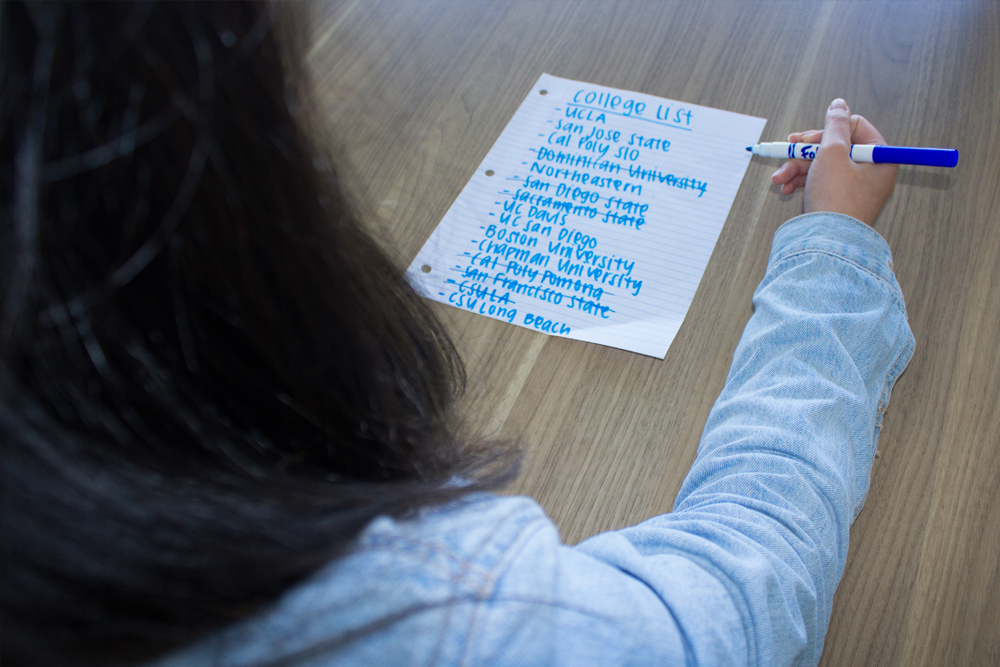 College List
- UCLA
- San Jose State
- Cal Poly SLO
- Dominican University
- Northeastern
- San Diego State
- Sacramento State
- UC Davis
- UC San Diego
- Boston University
- Chapman University
- Cal Poly Pomona
- San Francisco State
- CSULA
- CSU Long Beach